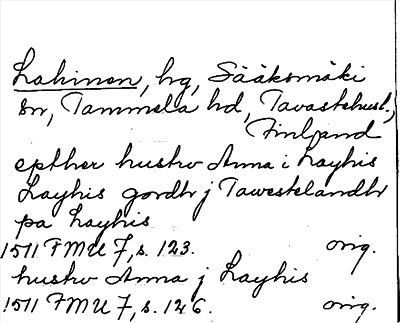 Lahinen, hg, Sääksmäki
sn, Tammela hd, Tavastehusl.,
Finland
epther hustrv Anna i Layhis
Layhis gordh j Tawestelandh
pa Layhis
1511 FMU 7, s. 123. orig.
hustrv Anna j Layhis
1511 FMU 7, s. 126. orig.